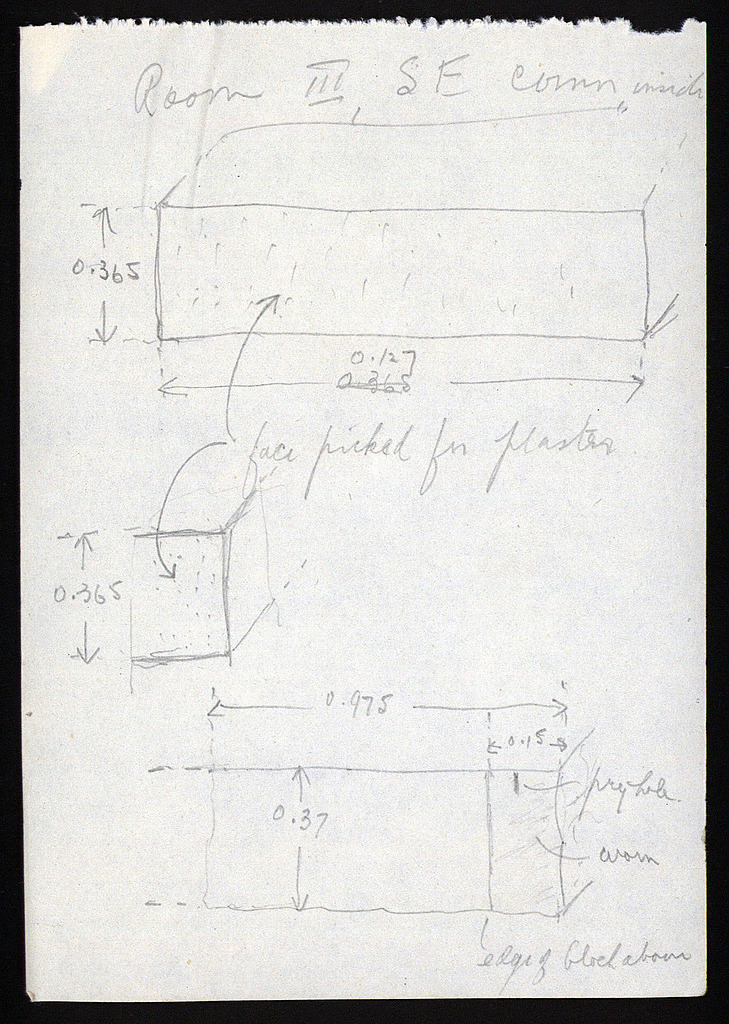 Room III, SE corner, inside
0.365
0.127
0.365
face picked for plaster
0.365
0.975
0.15
pry hole
0.37
worn
edge of block above